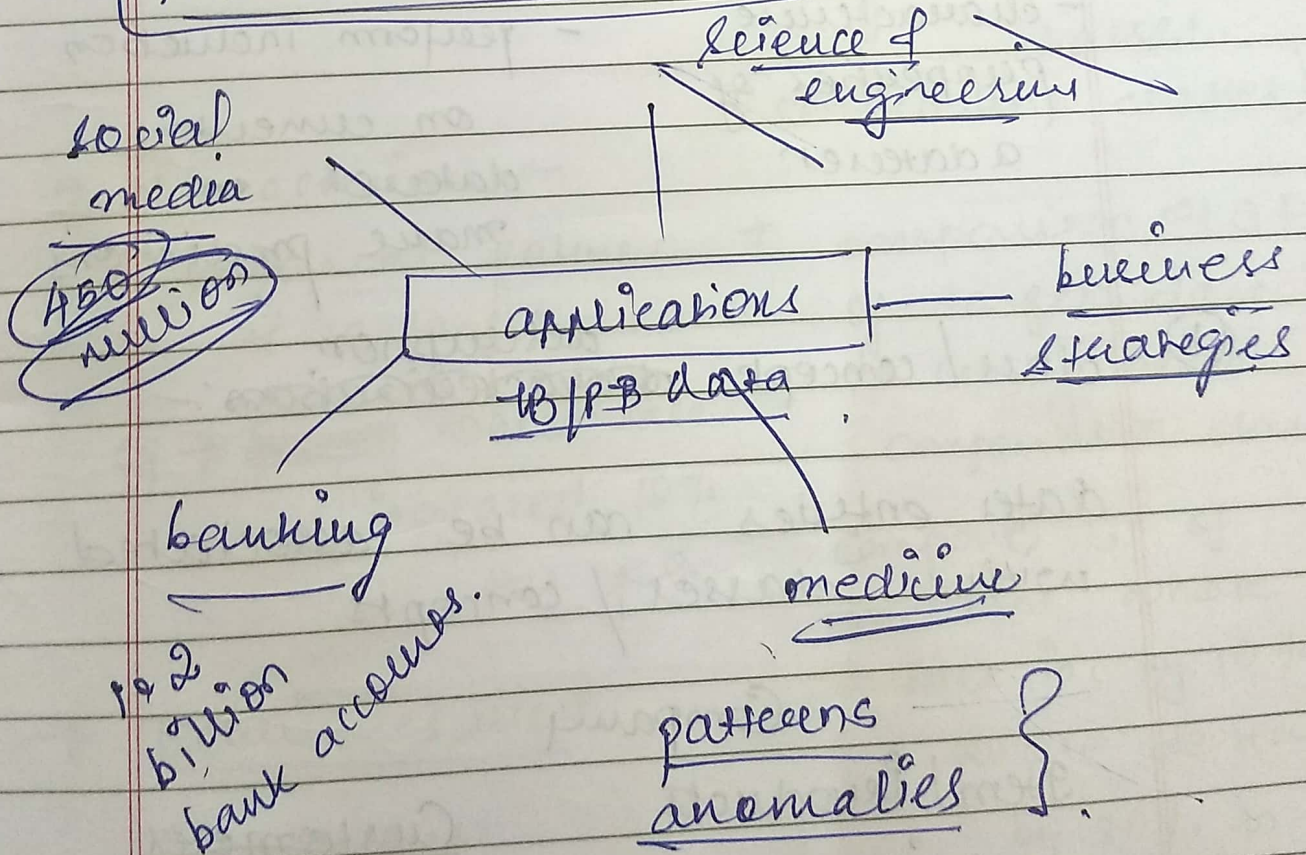 science &
engineering
social
media
450
million
applications
TB/PB data
business
strategies
banking
1.2
billion
bank accounts.
medicine
patterns
anomalies